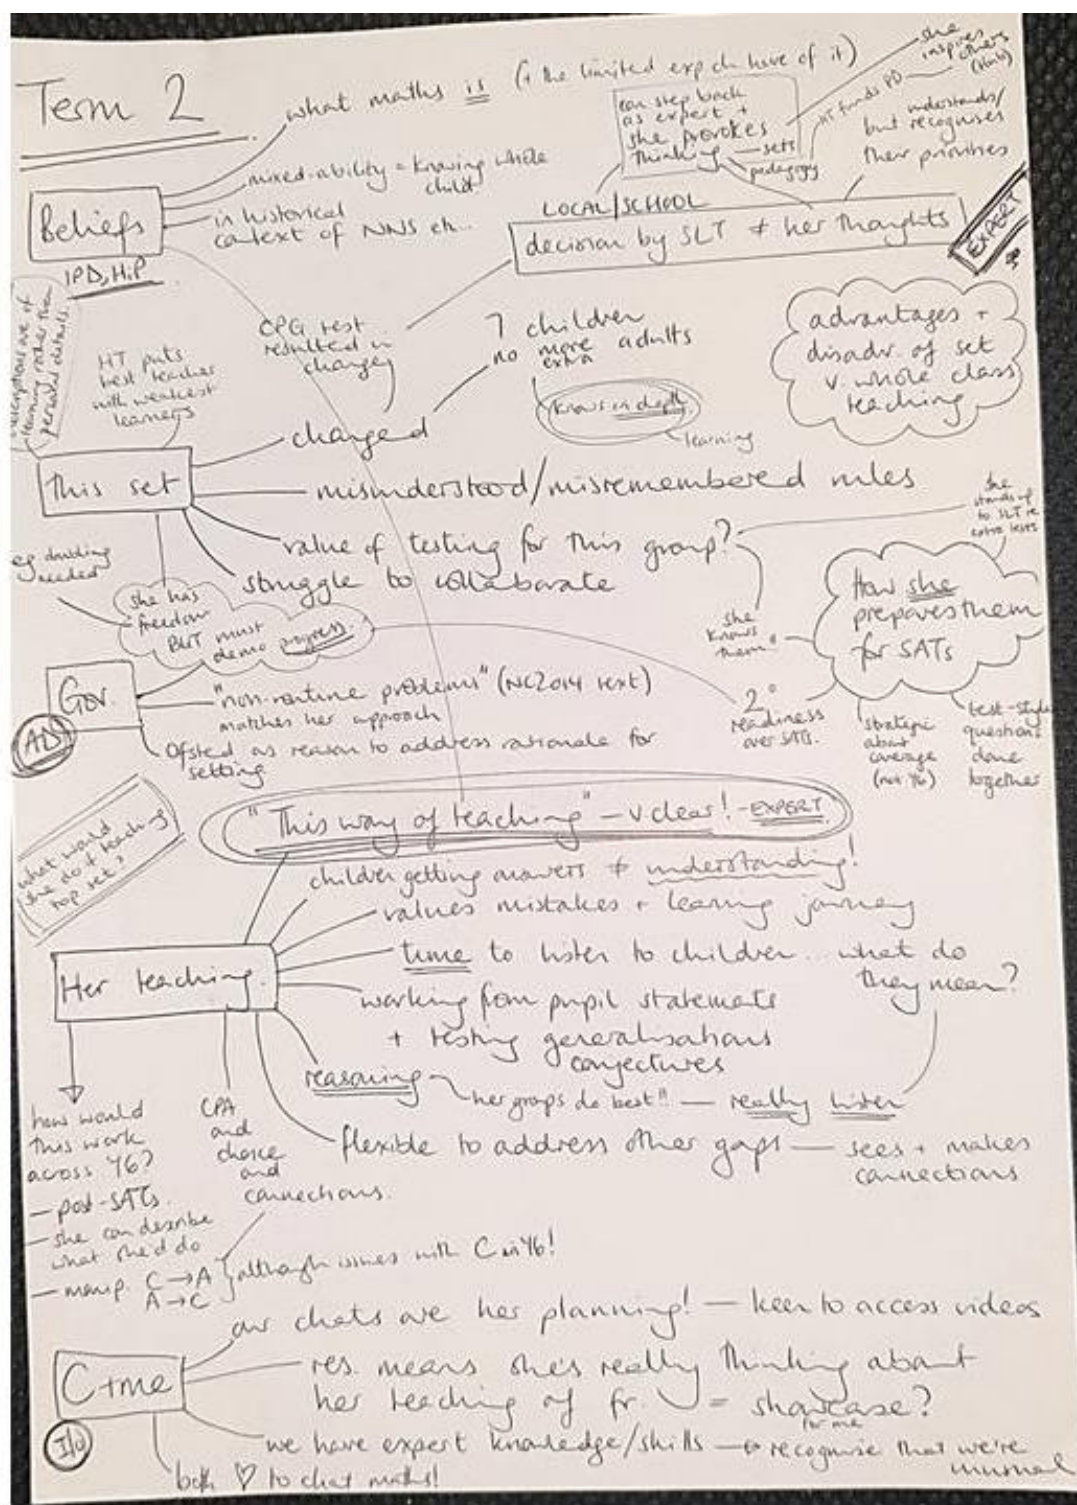 Term 2
what maths is (+ the limited exp ch have of it)
mixed-ability = knowing whole
child
in historical
context of NNS etc..
Beliefs
IPD, HiP
can step back
as expert +
she provokes
thinking
sets
pedagogy
HT funds PD
she
inspires
others
(Hub)
understands/
but recognises
their priorities
LOCAL/SCHOOL
decision by SLT ≠ her thoughts
EXPERT
descriptions are of
learning rather than
personal details.
HT puts
best teacher
with weakest
learners
CPG test
resulted in
changes
7 children
no more adults
extra
knows in depth
learning
advantages +
disadv. of set
v. whole class
teaching
This set
changed
misunderstood/misremembered rules
value of testing for this group?
struggle to collaborate
she
stands up
to SLT re
extra tests
eg doubling
needed
she has
freedom
BUT must
demo progress.
she
knows
them"
How she
prepares them
for SATs
2°
readiness
over SATs.
strategic
about
coverage
(not Y6)
test-style
questions
done
together
Gov.
AD
"non-routine problems" (NC2014 text)
matches her approach
Ofsted as reason to address rationale for
setting
"This way of teaching" – v clear! – EXPERT
what would
she do if teaching
top set?
children getting answers ≠ understanding!
values mistakes + learning journey
Her teaching.
time to listen to children.. what do
they mean?
working from pupil statements
+ testing generalisations
conjectures
reasoning
her groups do best!! — really listen
flexible to address other gaps — sees + makes
connections
how would
this work
across Y6?
– post-SATs.
– she can describe
what she'd do
– manip. C→A
A→C
CPA
and
choice
and
connections.
although issues with C in Y6!
C+me
I/O
our chats are her planning! — keen to access videos
res. means she's really thinking about
her teaching of fr. = showcase?
for me
we have expert knowledge/skills → recognise that we're
unusual
both ♡ to chat maths!